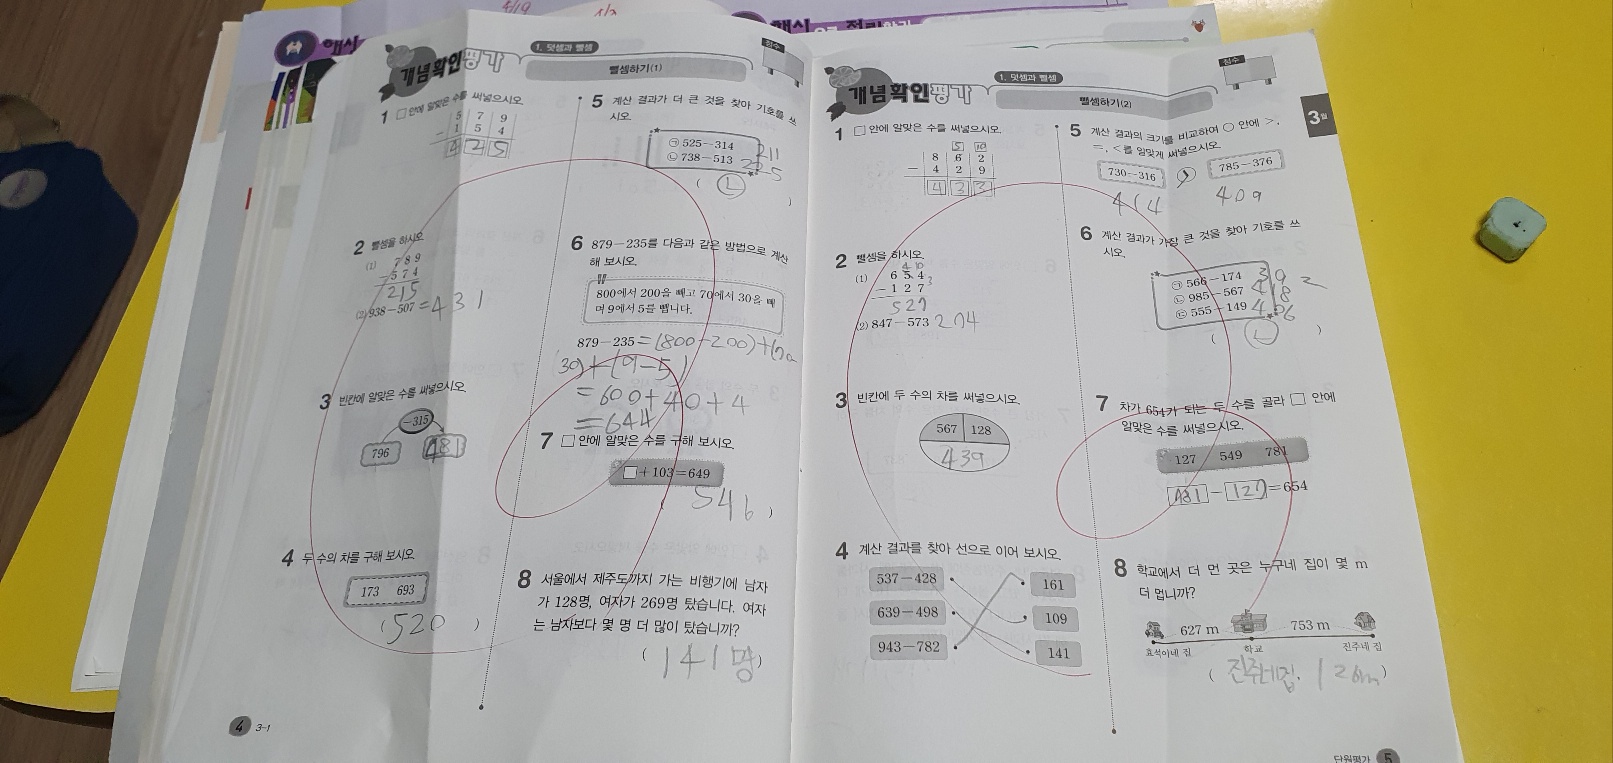 4/19
핵심
핵심
개념확인평가
1. 덧셈과 뺄셈
뺄셈하기(1)
점수
1 □ 안에 알맞은 수를 써넣으시오.
5 7 9
- 1 5 4
4 2 5
2 뺄셈을 하시오.
(1) 7 8 9
- 5 7 4
215
(2) 938-507 = 431
3 빈칸에 알맞은 수를 써넣으시오.
-315
796 481
4 두 수의 차를 구해 보시오.
173 693
( 520 )
5 계산 결과가 더 큰 것을 찾아 기호를 쓰
시오.
㉠ 525-314 211
㉡ 738-513 225
( ㉡ )
6 879-235를 다음과 같은 방법으로 계산
해 보시오.
800에서 200을 빼고 70에서 30을 빼
며 9에서 5를 뺍니다.
879-235 = (800-200)+(70-
30)+(9-5)
=600+40+4
=644
7 □ 안에 알맞은 수를 구해 보시오.
□+103=649
( 546 )
8 서울에서 제주도까지 가는 비행기에 남자
가 128명, 여자가 269명 탔습니다. 여자
는 남자보다 몇 명 더 많이 탔습니까?
( 141명 )
4 3-1
개념확인평가
1. 덧셈과 뺄셈
뺄셈하기(2)
점수
3월
1 □ 안에 알맞은 수를 써넣으시오.
5 10
8 6 2
- 4 2 9
4 3 3
2 뺄셈을 하시오.
4 10
(1) 6 5 4
- 1 2 7
527
(2) 847-573 274
3 빈칸에 두 수의 차를 써넣으시오.
567 128
439
4 계산 결과를 찾아 선으로 이어 보시오.
537-428 161
639-498 109
943-782 141
5 계산 결과의 크기를 비교하여 ○ 안에 >,
=, <를 알맞게 써넣으시오.
730-316 > 785-376
414 409
6 계산 결과가 가장 큰 것을 찾아 기호를 쓰
시오.
㉠ 566-174 392
㉡ 985-567 418
㉢ 555-149 406
( ㉡ )
7 차가 654가 되는 두 수를 골라 □ 안에
알맞은 수를 써넣으시오.
127 549 781
781 - 127 =654
8 학교에서 더 먼 곳은 누구네 집이 몇 m
더 멉니까?
627 m 753 m
효석이네 집 학교 진주네 집
( 진주네집. 126m )
단원평가 5